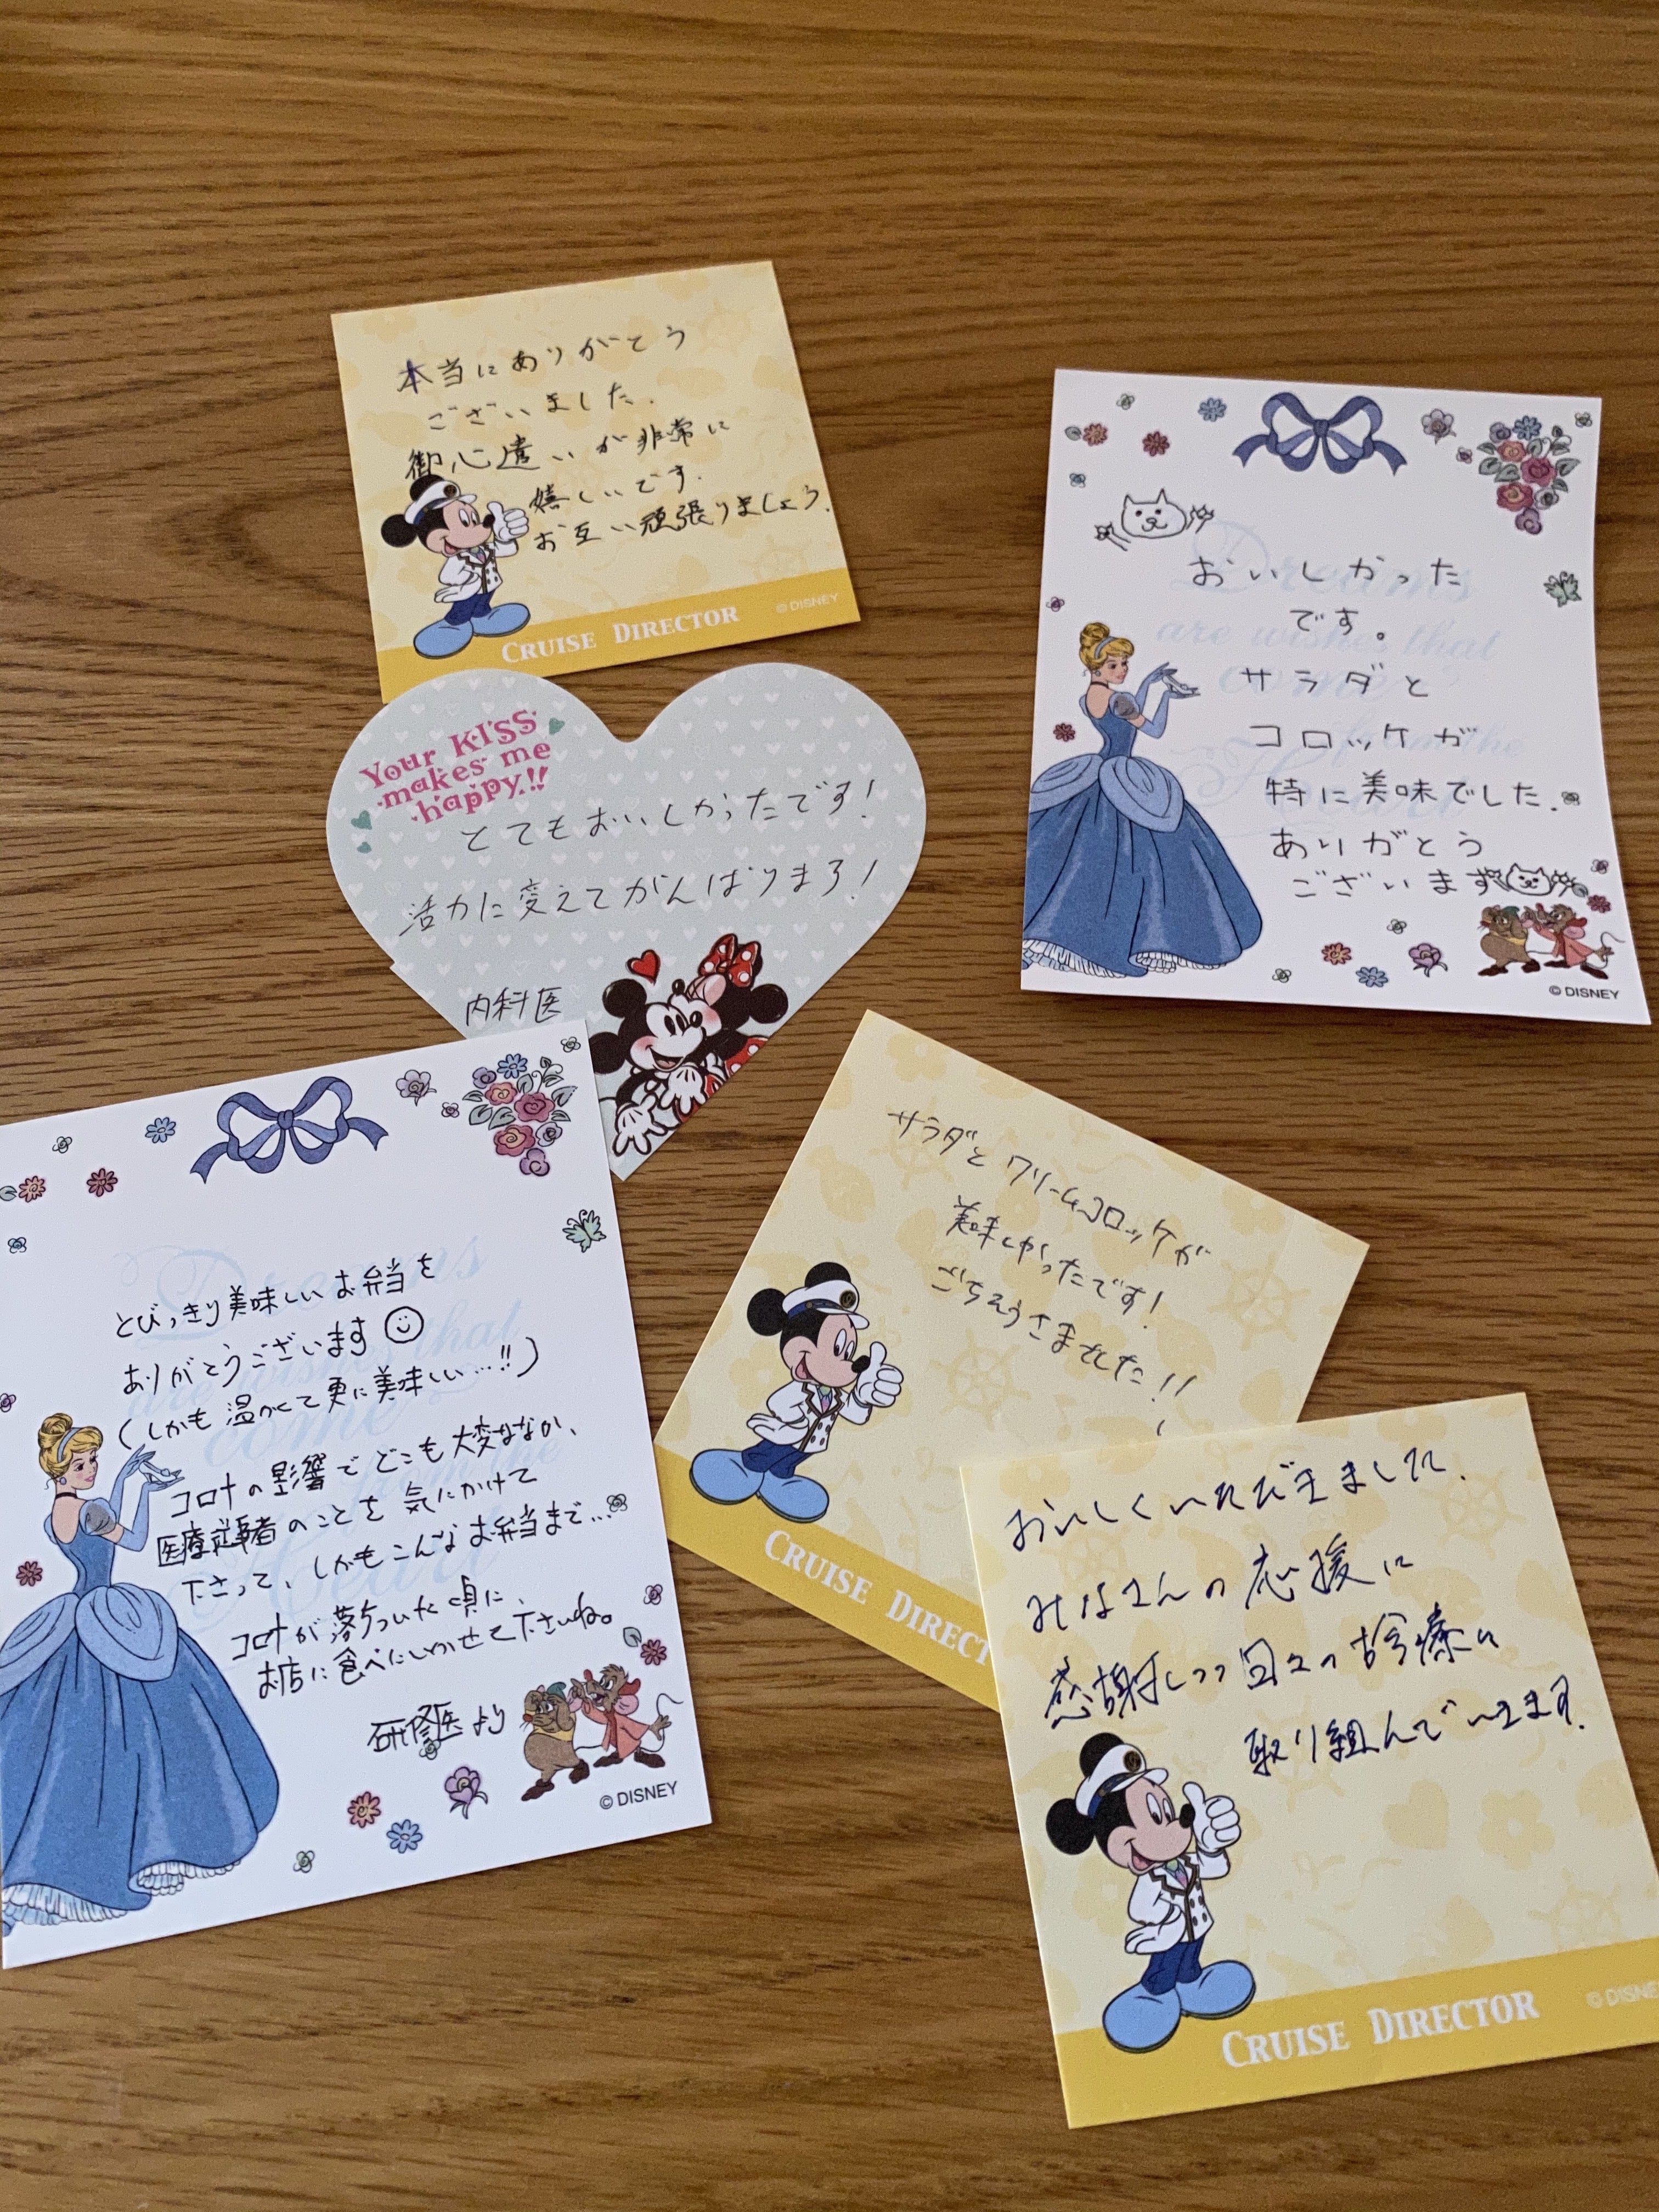 本当にありがとう
ございました.
御心遣いが非常に
嬉しいです.
お互い頑張りましょう.
CRUISE DIRECTOR
© DISNEY
Your KISS
makes me
happy!!
とてもおいしかったです!
活力に変えてがんばりまう!
内科医
おいしかった
です。
サラダと
コロッケが
特に美味でした.
ありがとう
ございます
Dreams
are wishes that
come
© DISNEY
とびっきり美味しいお弁当を
ありがとうございます
(しかも温かくて更に美味しい…!!)
コロナの影響でどこも大変ななか、
医療従事者のことを気にかけて
下さって、しかもこんなお弁当まで…
コロナが落ちついた頃に、
お店に食べにいかせて下さいね。
研修医より
© DISNEY
サラダとクリームコロッケが
美味しかったです!
ごちそうさまでした!!
CRUISE DIRECT
おいしくいただきました.
みなさんの応援に
感謝しつつ日々の診療に
取り組んでいきます.
CRUISE DIRECTOR
© DISNE